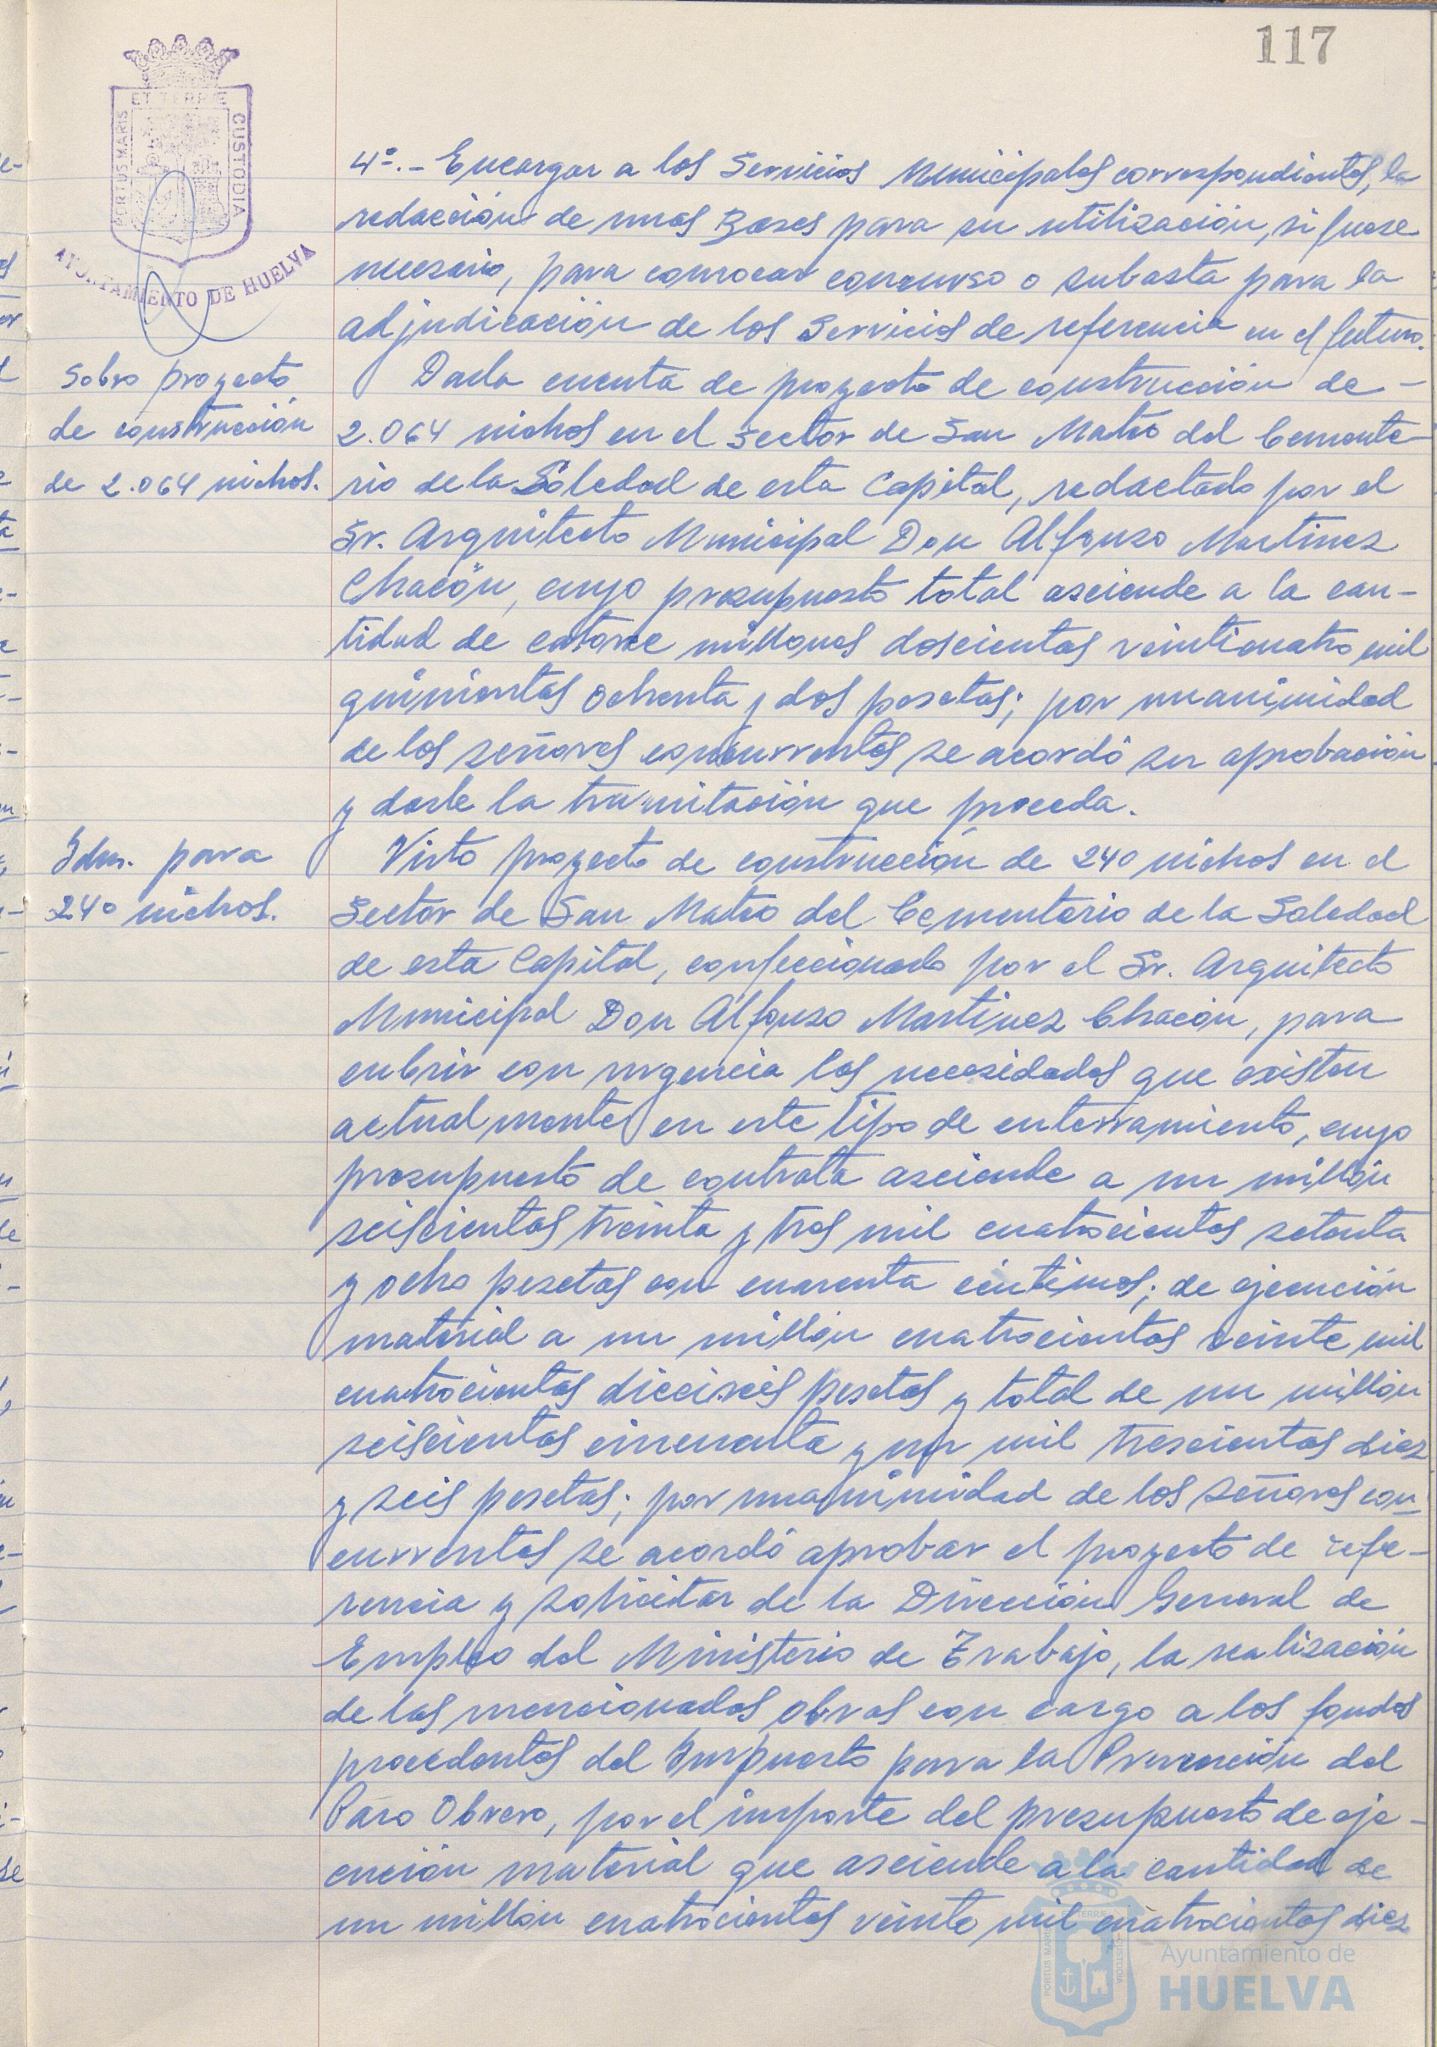 117
PORTUS MARIS ET TERRÆ CUSTODIA
AYUNTAMIENTO DE HUELVA
4º.- Encargar a los Servicios Municipales correspondientes, la
redacción de unas Bases para su utilización, si fuese
necesario, para convocar concurso o subasta para la
adjudicación de los Servicios de referencia en el futuro.
Sobre proyecto
de construcción
de 2.064 nichos.
Dada cuenta de proyecto de construcción de -
2.064 nichos en el Sector de San Mateo del Cemente-
rio de la Soledad de esta Capital, redactado por el
Sr. Arquitecto Municipal Don Alfonso Martinez
Chacón, cuyo presupuesto total asciende a la can-
tidad de catorce millones doscientas veinticuatro mil
quinientas ochenta y dos pesetas; por unanimidad
de los señores concurrentes se acordó su aprobación
y darle la tramitación que proceda.
Idm. para
240 nichos.
Visto proyecto de construcción de 240 nichos en el
Sector de San Mateo del Cementerio de la Soledad
de esta Capital, confeccionado por el Sr. Arquitecto
Municipal Don Alfonso Martinez Chacón, para
cubrir con urgencia las necesidades que existen
actualmente en este tipo de enterramiento, cuyo
presupuesto de contrata asciende a un millón
seiscientas treinta y tres mil cuatrocientas setenta
y ocho pesetas con cuarenta céntimos; de ejecución
material a un millón cuatrocientas veinte mil
cuatrocientas dieciseis pesetas y total de un millón
seiscientas cincuenta y un mil trescientas diez
y seis pesetas; por unanimidad de los señores con-
currentes se acordó aprobar el proyecto de refe-
rencia y solicitar de la Dirección General de
Empleo del Ministerio de Trabajo, la realización
de las mencionadas obras con cargo a los fondos
procedentes del Impuesto para la Prevención del
Paro Obrero, por el importe del presupuesto de eje-
cución material que asciende a la cantidad de
un millón cuatrocientas veinte mil cuatrocientas diez
Ayuntamiento de
HUELVA